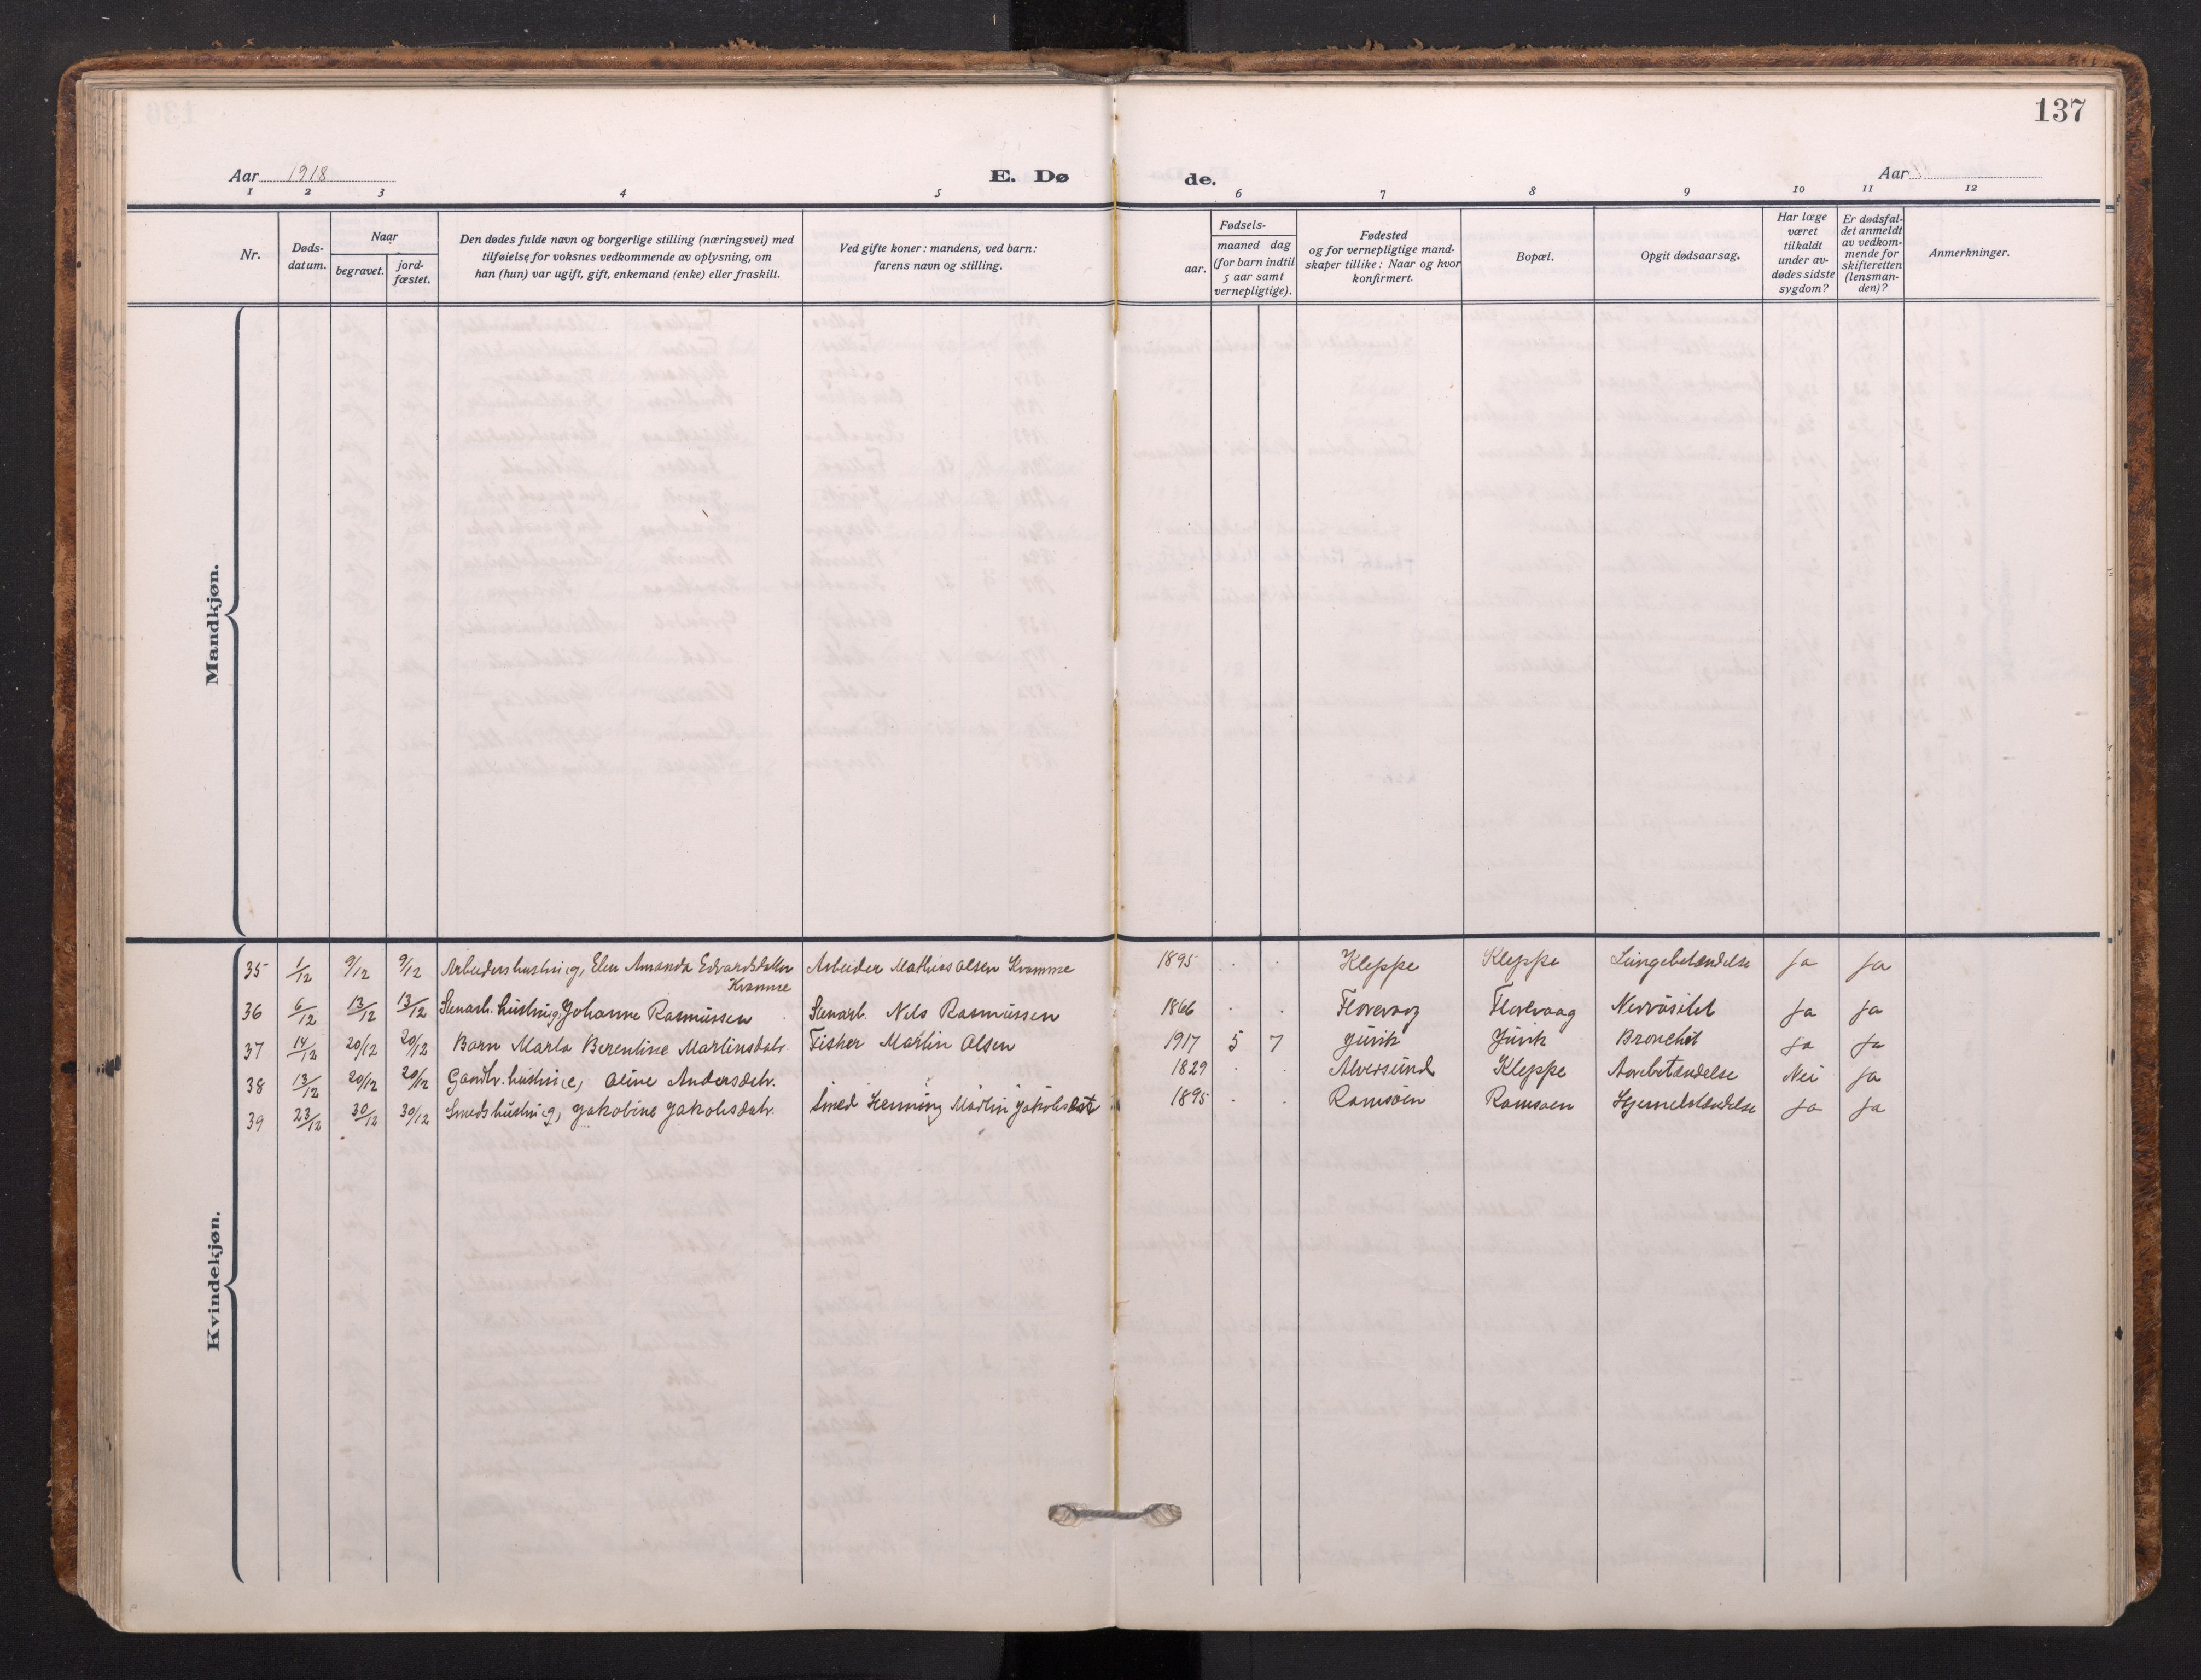 137
Aar 1918
E. Dø
de.
Aar
1 2 3 4 5 6 7 8 9 10 11 12
Nr.
Døds-
datum.
Naar
begravet.
jord-
fæstet.
Den dødes fulde navn og borgerlige stilling (næringsvei) med
tilføielse for voksnes vedkommende av oplysning, om
han (hun) var ugift, gift, enkemand (enke) eller fraskilt.
Ved gifte koner: mandens, ved barn:
farens navn og stilling.
Fødsels-
aar.
maaned dag
(for barn indtil
5 aar samt
vernepligtige).
Fødested
og for vernepligtige mand-
skaper tillike: Naar og hvor
konfirmert.
Bopæl.
Opgit dødsaarsag.
Har læge
været
tilkaldt
under av-
dødes sidste
sygdom?
Er dødsfal-
det anmeldt
av vedkom-
mende for
skifteretten
(lensman-
den)?
Anmerkninger.
Mandkjøn.
Kvindekjøn.
35 1/12 9/12 9/12 Arbeiders hustru (g) Elen Amanda Edvardsdatter Arbeider Mathias Olsen Kvamme 1895 . . Kleppe Kleppe Lungebetændelse Ja Ja
Kvamme
36 6/12 13/12 13/12 Stenarb. hustru (g) Johanne Rasmussen Stenarb. Nels Rasmussen 1866 . . Florevaag Florevaag Nervøsitet Ja Ja
37 14/12 20/12 20/12 Barn Marta Berentine Martinsdatr. Fisker Martin Olsen 1917 5 7 Juvik Juvik Bronchit Ja Ja
38 13/12 20/12 20/12 Gaardbr. hustru (e) Oline Andersdatr. 1829 . . Alversund Kleppe Aarebetændelse Nei Ja
39 23/12 30/12 30/12 Smeds hustru (g) Jakobine Jakobsdatr. Smed Henning Martin Jakobsen 1895 . . Ramsøen Ramsøen Hjernebetændelse Ja Ja